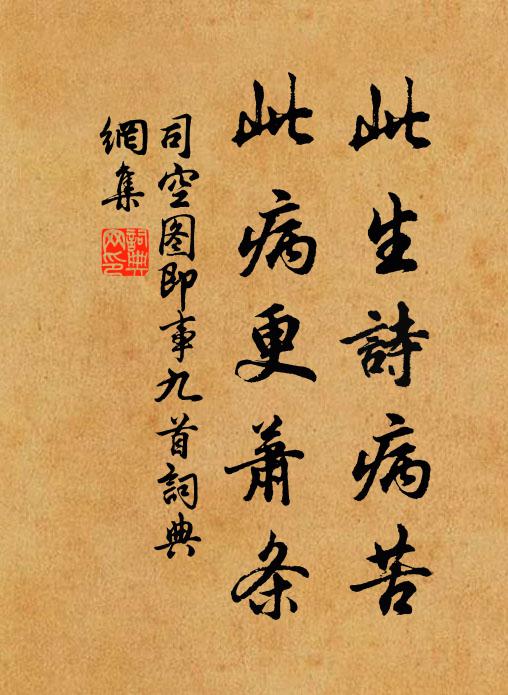 此生詩病苦
此病更蕭条
司空图即事九首詞典
網集
詞典网印